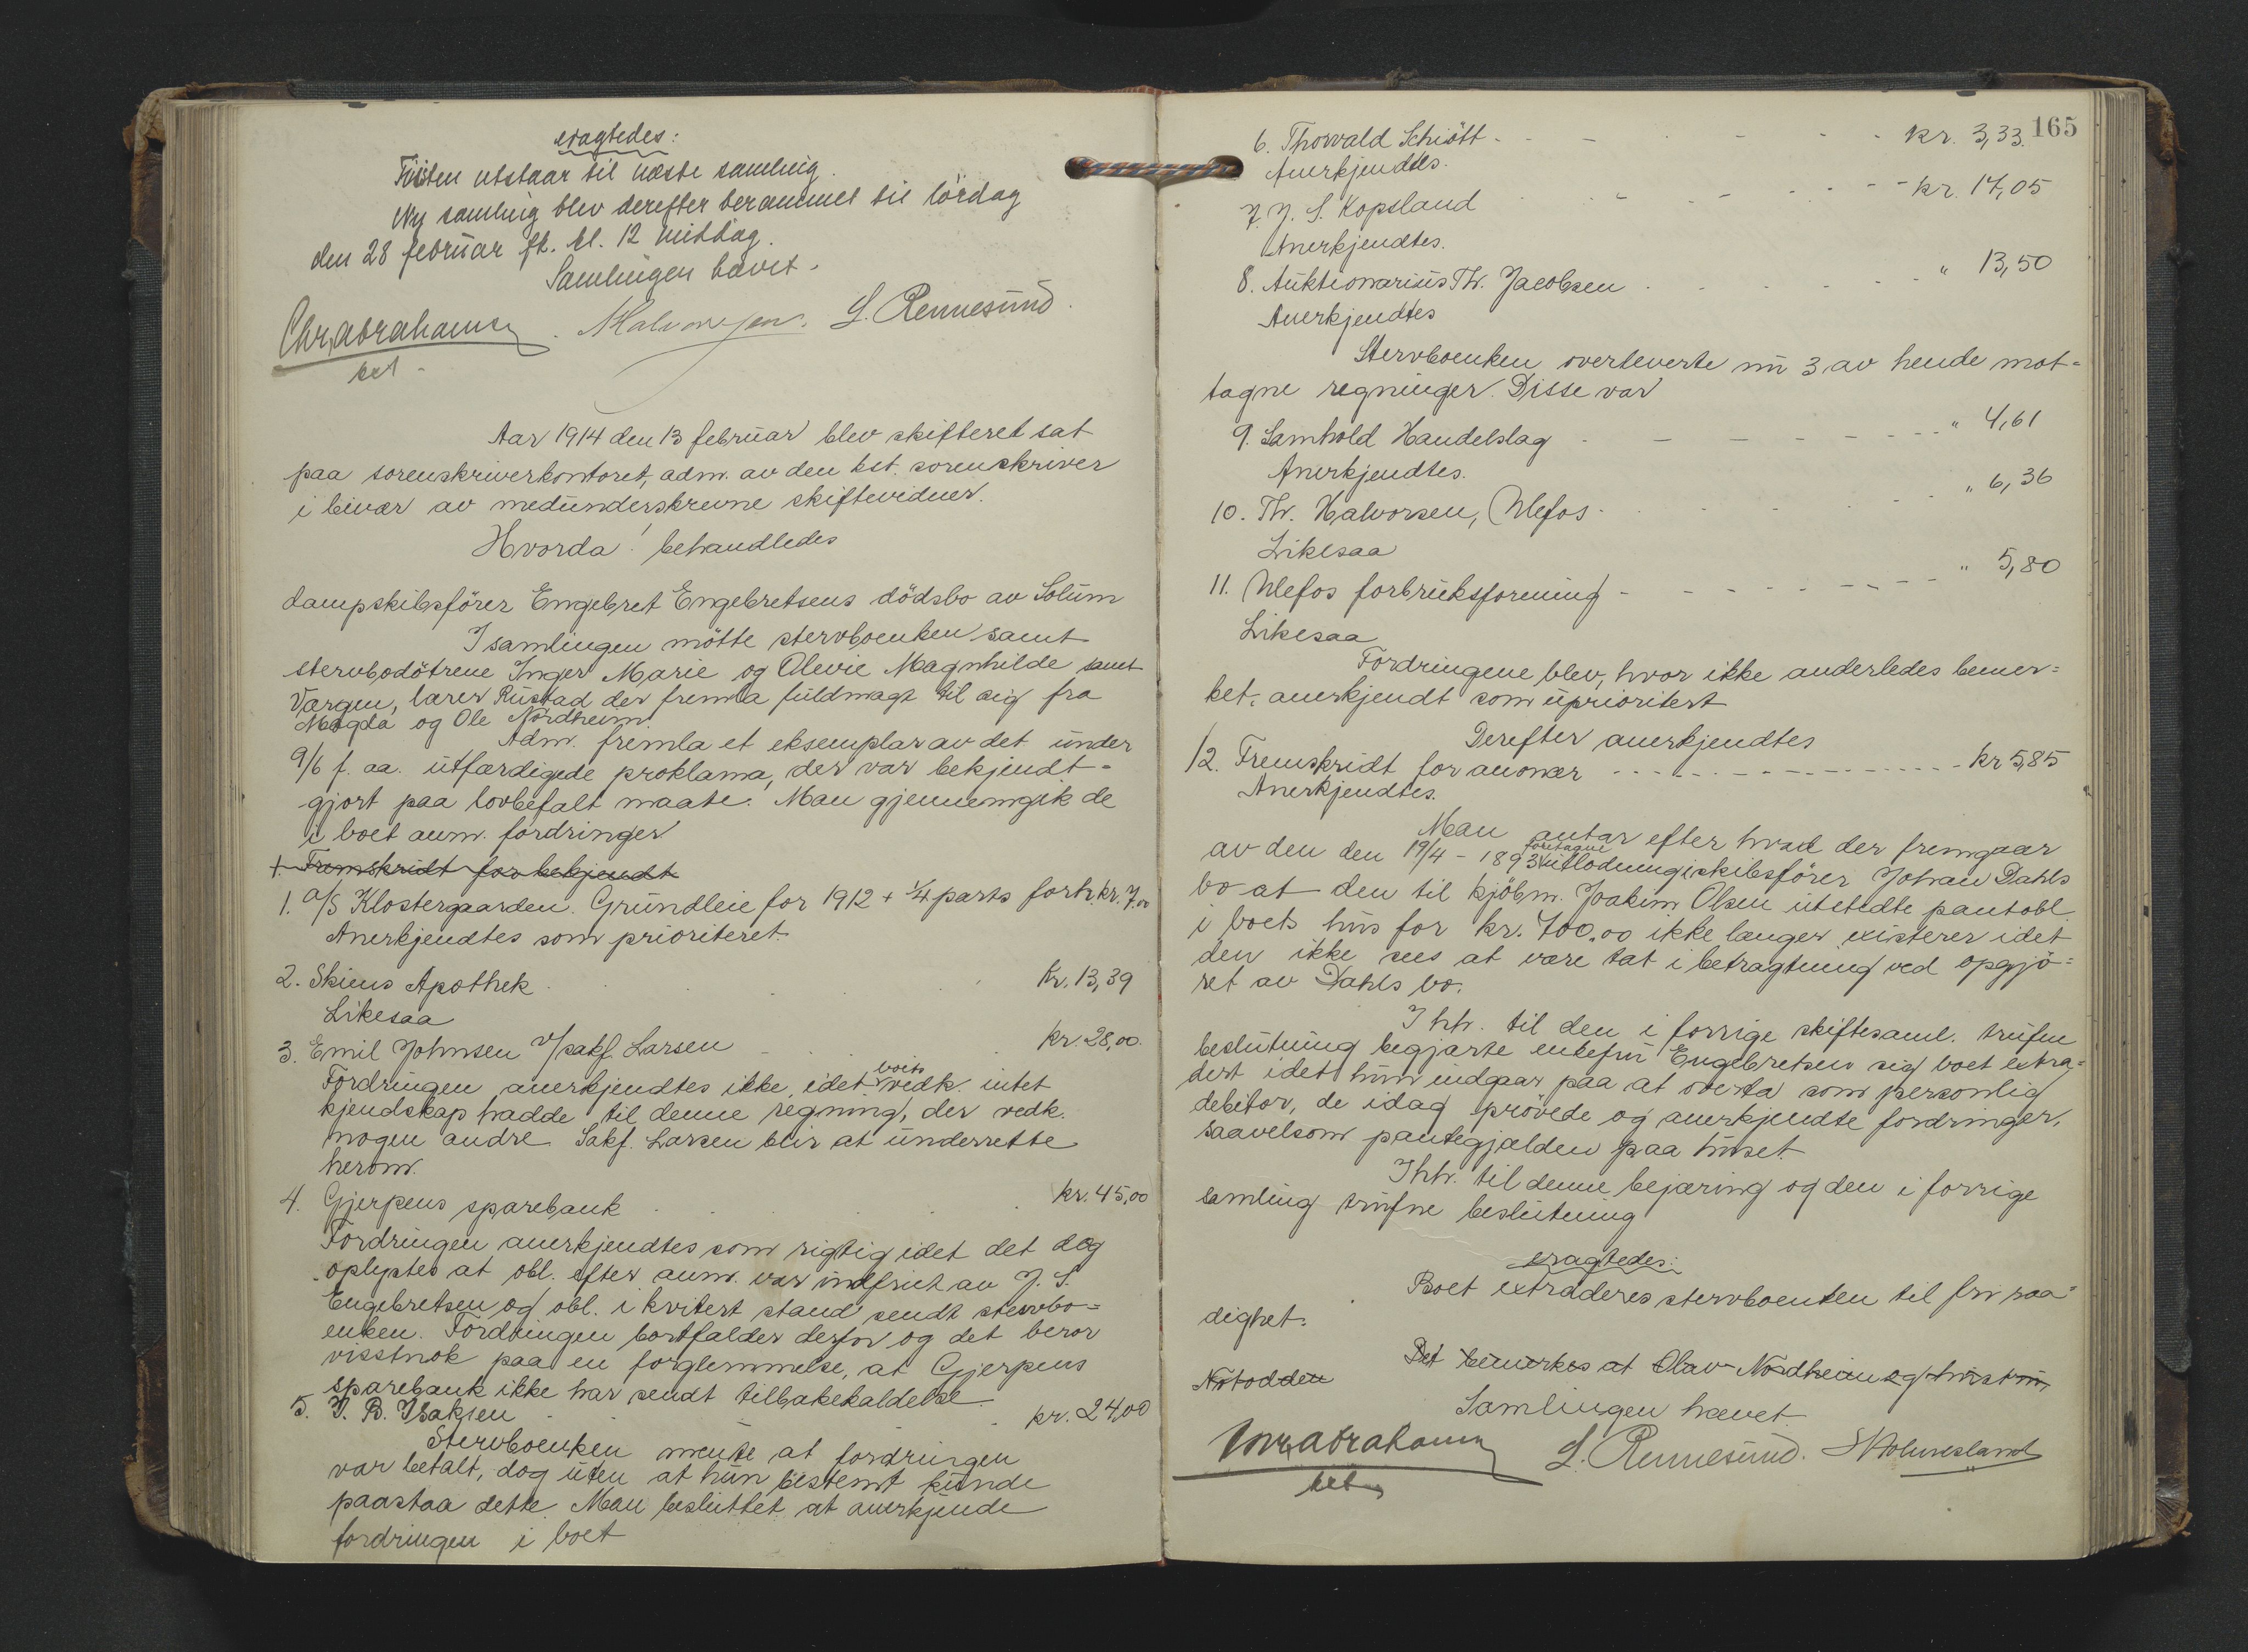 eragtedes:
Tvisten utstaar til næste samling.
Ny samling blev derefter berammet til lördag
den 28 februar ft. kl. 12 middag.
Samlingen hævet.
Chr. Abrahamsen Halvorsen. L. Rennesund.
kst.
Aar 1914 den 13 februar blev skifteret sat
paa sorenskriverkontoret, adm. av den kst. sorenskriver
i bivær av medunderskrevne skiftevidner.
Hvorda! behandledes
dampskibsförer Engebret Engebretsens dödsbo av Solum
I samlingen mötte stervboenken samt
stervbodötrene Inger Marie og Olevie Magnhilde samt
Værgen, lærer Rustad der fremla fuldmagt til sig fra
Magda og Ole Nordheim.
Adm. fremla et eksemplar av det under
9/6 f. aa. utfærdigede proklama, der var bekjendt-
gjort paa lovbefalt maate. Man gjennemgik de
i boet anm. fordringer
1. Fremskridt for bekjendt
1. A/S Klostergaarden. Grundleie for 1912 + 1/4 parts forh. kr. 7.00
Anerkjendtes som prioriteret.
2. Skiens Apothek kr. 13,39
Likesaa
3. Emil Johnsen v/sakf. Larsen kr. 28,00.
Fordringen anerkjendtes ikke, idet boets vedk. intet
kjendskap hadde til denne regning, der vedk.
nogen andre. Sakf. Larsen blir at underrette
herom.
4. Gjerpens sparebank kr. 45,00
Fordringen anerkjendtes som rigtig idet det dog
oplystes at obl. efter anm. var indfriet av J. S.
Engebretsen og obl. i kvitert stand sendt stervbo-
enken. Fordringen bortfalder derfor og det beror
visstnok paa en forglemmelse, at Gjerpens
sparebank ikke har sendt tilbakekaldelse
5. J. B. Isaksen kr. 24,00
Stervboenken mente at fordringen
var betalt, dog uten at hun bestemt kunde
paastaa dette. Man besluttet at anerkjende
fordringen i boet
165
6. Thorvald Schiött kr. 3,33.
Anerkjendtes.
7. J. S. Kopsland kr. 17,05
Anerkjendtes.
8. Auktionarius Th. Jacobsen " 13,50
Anerkjendtes
Stervboenken overleverte nu 3 av hende mot-
tagne regninger. Disse var
9. Samhold Handelslag " 4,61
Anerkjendtes.
10. Th. Halvorsen, Ulefos " 6,36
Likesaa
11. Ulefos forbruksforening " 5,80
Likesaa
Fordringene blev, hvor ikke anderledes bemer-
ket, anerkjendt som uprioritert
Derefter anerkjendtes
12. Fremskridt for anonser kr 5,85
Anerkjendtes.
Man antar efter hvad der fremgaar
av den den 19/4 - 1893 foretagne utlodning i skibsförer Johan Dahls
bo at den til kjöbm. Joakim Olsen utstedte pantobl.
i boets hus for kr. 700,00 ikke længer existerer idet
den ikke sees at være tat i betragtning ved opgjö-
ret av Dahls bo.
I hh. til den i forrige skiftesaml. trufne
beslutning begjærte enkefru Engebretsen sig boet extra-
dert idet hun indgaar paa at overta som personlig
debitor, de idag prövede og anerkjendte fordringer,
saavelsom pantegjælden paa huset.
I hh. til denne begjæring og den i forrige
samling trufne beslutning
eragtedes:
Boet extraderes stervboenken til fri raa-
dighet.
Det bemerkes at Olav Nordheim og hustru,
Notodden
Samlingen hævet.
Chr. Abrahamsen L. Rennesund.
kst.